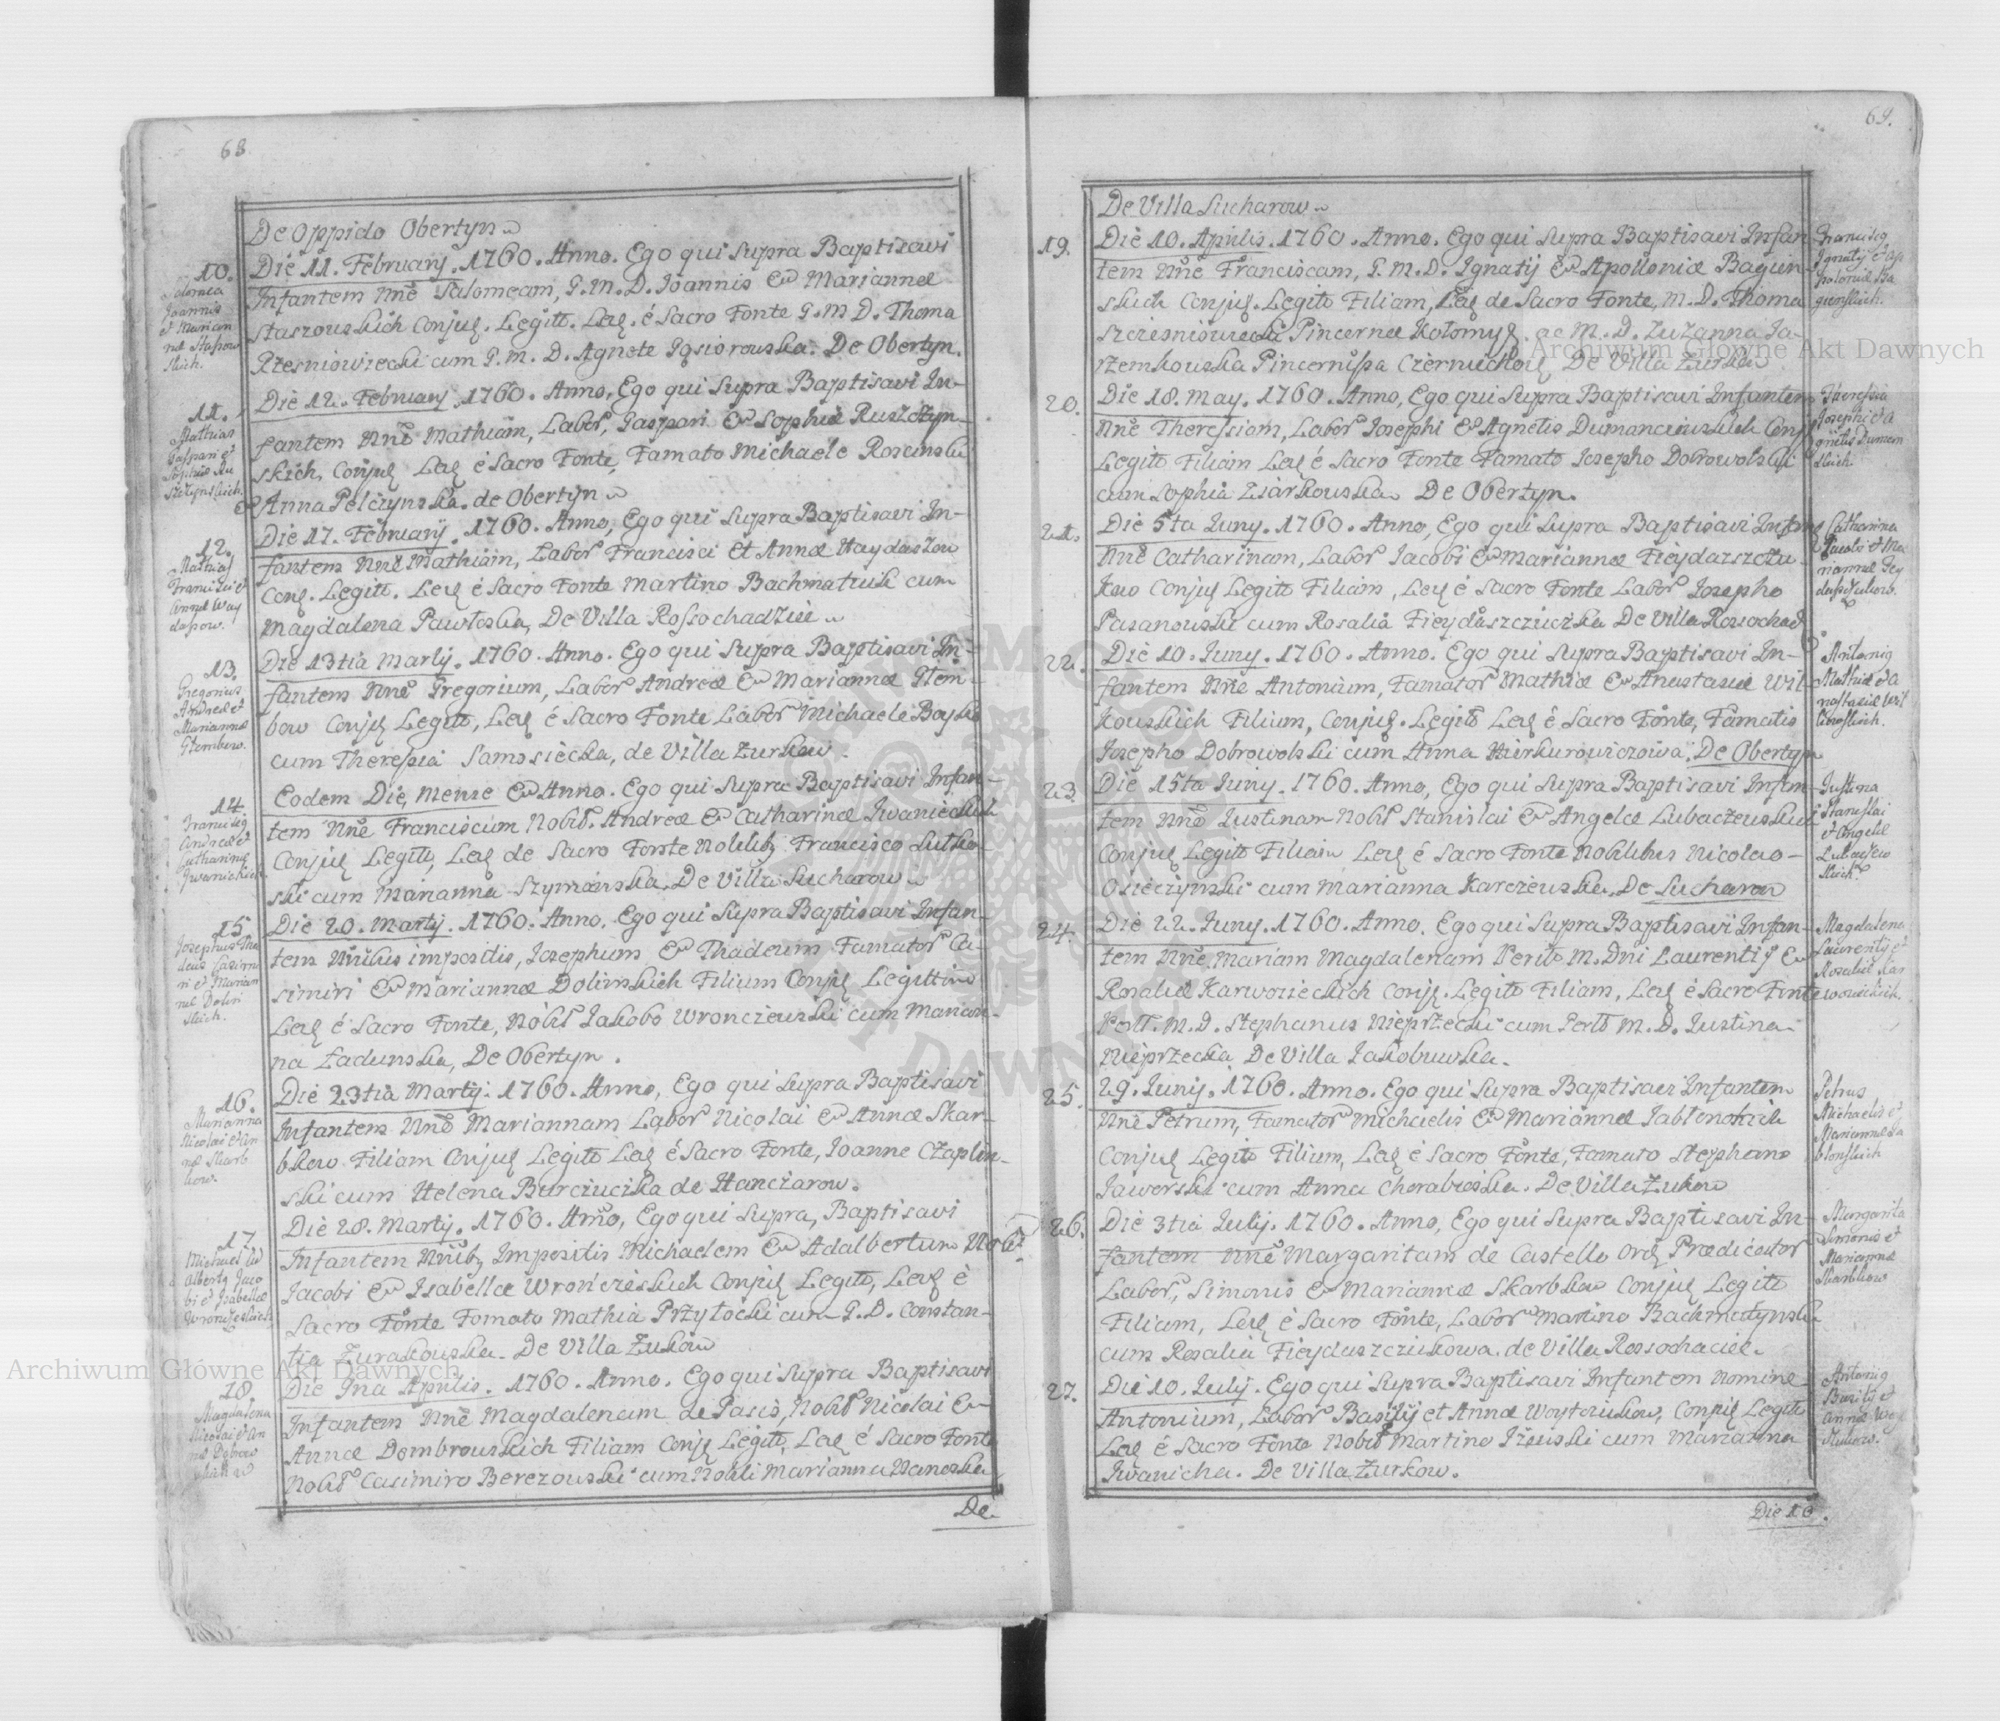 68
De Oppido Obertyn
10.
Salomea
Joannis
et Marian
næ Staszow
skich.
Die 11. February. 1760. Anno. Ego qui Supra Baptisavi
Infantem Nnē Salomeam, G. M. D. Joannis & Mariannæ
Staszouskich Conjug. Legitt. Lev. é Sacro Fonte G. M D. Thoma
Rzesniowiecki cum G. M. D. Agnete Gąsiorouska. De Obertyn.
11.
Mathias
Gaspari et
Sophiæ Ru
szczynskich.
Die 12. February. 1760. Anno, Ego qui Supra Baptisavi In-
fantem Nnē Mathiam, Labor, Gaspari & Sophiæ Ruszczyn-
skich, Conjug Lev é Sacro Fonte, Famato Michaele Roscinski
& Anna Pelczynska. de Obertyn
12.
Mathias
Francisci et
Annæ Hay
dasow.
Die 17. February. 1760. Anno, Ego qui Supra Baptisavi In-
fantem Nnē Mathiam, Labor Francisci Et Annæ Haydaszow
Conj. Legitt. Lev é Sacro Fonte Martino Bachmatiuk cum
Magdalena Pawłoska, De Villa Rossochadzie
13.
Gregorius
Andreæ et
Mariannæ
Glembow.
Die 13tia Martij. 1760. Anno. Ego qui Supra Baptisavi In-
fantem Nnē Gregorium, Labor Andreæ & Mariannæ Glem-
bow Conjug Legitt, Lev é Sacro Fonte Labor Michaele Boyko
cum Theresia Samosiecka, de Villa Zurkow.
14.
Franciscg
Andreæ et
Catharinæ
Jwanickich
Eodem Die, Mense & Anno. Ego qui Supra Baptisavi Infan-
tem Nnē Franciscum Nobil. Andreæ & Catharinæ Jwanickich
Conjug Legitt, Lev de Sacro Fonte Nobilib Francisco Lutko-
ski cum Marianna Szymanska, De Villa Sucharow
15.
Josephus Tha
deus Casimi
ri et Marian
næ Dolin
skich.
Die 20. Martij. 1760. Anno. Ego qui Supra Baptisavi Infan-
tem Nnibus impositis, Josephum & Thadeum Famator Ca-
simiri & Mariannæ Dolinskich Filium Conjug Legittim
Lev é Sacro Fonte, Nobil Jakobo Wronczewski cum Marian-
na Ładunska, De Obertyn.
16.
Marianna
Nicolai et An
næ Skarb
kow.
Die 23tia Martij. 1760. Anno, Ego qui Supra Baptisavi
Infantem Nnē Mariannam Labor Nicolai & Annæ Skar-
bkow Filiam Conjug Legitt Lev é Sacro Fonte, Joanne Czaplin-
ski cum Helena Burciuczka de Hanczarow.
17.
Michael Ad
Albertg Jaco
bi et Isabellæ
Wronczeskich
Die 28. Martij. 1760. Anno, Ego qui Supra, Baptisavi
Infantem Nnib Impositis Michaelem & Adalbertum Nobil
Jacobi & Isabellæ Wronczeskich Conjug Legitt, Lev é
Sacro Fonte Fomato Mathia Przyłocki cum G. D. Constan-
tia Zurakouska. De Villa Zukow
18.
Magdalena
Nicolai et An
næ Dobrow
skich
Die 1na Aprilis. 1760. Anno. Ego qui Supra Baptisavi
Infantem Nnē Magdalenam de Pasis, Nobil Nicolai &
Annæ Dombrouskich Filiam Conjug Legitt, Lev é Sacro Fonte
Nobil Casimiro Berezouski cum Nobili Marianna Hanoska
De
69.
De Villa Sucharow
19.
Die 10. Aprilis. 1760. Anno. Ego qui Supra Baptisavi Infan
tem Nnē Franciscam, G. M. D. Ignatij & Apolloniæ Bagien-
skich Conjug. Legitt Filiam, Lev de Sacro Fonte, M. D. Thoma
Szczesniowiecki Pincernæ Kołomy. ac M. D. Zuzanna Ja-
rzemkouska Pincernissa Czerniechow De Villa Zurkow
Franciscg
Ignatij et Ap
poloniæ Ba
gienskich.
20.
Die 18. May. 1760. Anno, Ego qui Supra Baptisavi Infantem
Nnē Theressiam, Labor Josephi & Agnetis Dumanciuskich Conjug
Legitt Filiam Lev é Sacro Fonte Famato Josepho Dobrowolski
cum Sophia Ziarkouska De Obertyn.
Theressia
Josephi et A
gnetis Duman
skich
21.
Die 5ta Juny. 1760. Anno, Ego qui Supra Baptisavi Infan
Nnē Catharinam, Labor Jacobi & Mariannæ Fieydaszczu-
kow Conjug Legitt Filiam, Lev é Sacro Fonte Labor Josepho
Pasanouski cum Rosalia Fieydaszczuczka De Villa Rossochad
Catharina
Jacobi et Ma
riannæ Fey
daszczukow.
22.
Die 10. Juny. 1760. Anno. Ego qui Supra Baptisavi In-
fantem Nnē Antonium, Famator Mathiæ & Anastasiæ Wil-
kouskich Filium, Conjug. Legitt Lev é Sacro Fonte, Famatis
Josepho Dobrowolski cum Anna Mierkurowiczowa. De Obertyn
Antonig
Mathiæ et A
nastasiæ Wil
kouskich.
23.
Die 15ta Juny. 1760. Anno, Ego qui Supra Baptisavi Infan-
tem Nnē Justinam Nobil Stanislai & Angelæ Lubaczeuskich
Conjug Legitt Filiam Lev é Sacro Fonte Nobilibus Nicolao-
Osieczynski cum Marianna Karczewska. De Sucharow
Justina
Stanislai
et Angelæ
Lubaczew
skich.
24.
Die 22. Juny. 1760. Anno. Ego qui Supra Baptisavi Infan-
tem Nnē Mariam Magdalenam Peritt M. Dni Laurentij &
Rosaliæ Karwosieckich Conjug. Legitt Filiam, Lev é Sacro Fonte
Pertt. M. D. Stephanus Nieprzecki cum Pertt M. D. Justina
Nieprzecka De Villa Jakobuwka.
Magdalena
Laurentij et
Rosaliæ Kar
wosieckich.
25.
29. Junij. 1760. Anno. Ego qui Supra Baptisavi Infantem
Nnē Petrum, Famator Michaelis & Mariannæ Jablonskich
Conjug Legitt Filium, Lev é Sacro Fonte, Famato Stephano
Jaworski cum Anna Chorabioska. De Villa Zukow
Petrus
Michaelis et
Mariannæ Ja
blonskich
26.
Die 3tia Julij. 1760. Anno, Ego qui Supra Baptisavi In-
fantem Nnē Margaritam de Castello Ord Prædicator
Labor, Simonis & Mariannæ Skarbkow Conjug Legitt
Filiam, Lev é Sacro Fonte, Labor Martino Bachmatynski
cum Rosalia Fieydaszczukowa. de Villa Rossochacie.
Margarita
Simonis et
Mariannæ
Skarbkow
27.
Die 10. Julij. Ego qui Supra Baptisavi Infantem Nomine
Antonium, Labor Basilij et Annæ Woytciukow, Conjug Legitt
Lev é Sacro Fonte Nobil Martino Jzeuski cum Marianna
Jwanicha. De Villa Zurkow.
Antonig
Basilij et
Annæ Woy
tciukow.
Die 10.
Archiwum Główne Akt Dawnych
Archiwum Główne Akt Dawnych